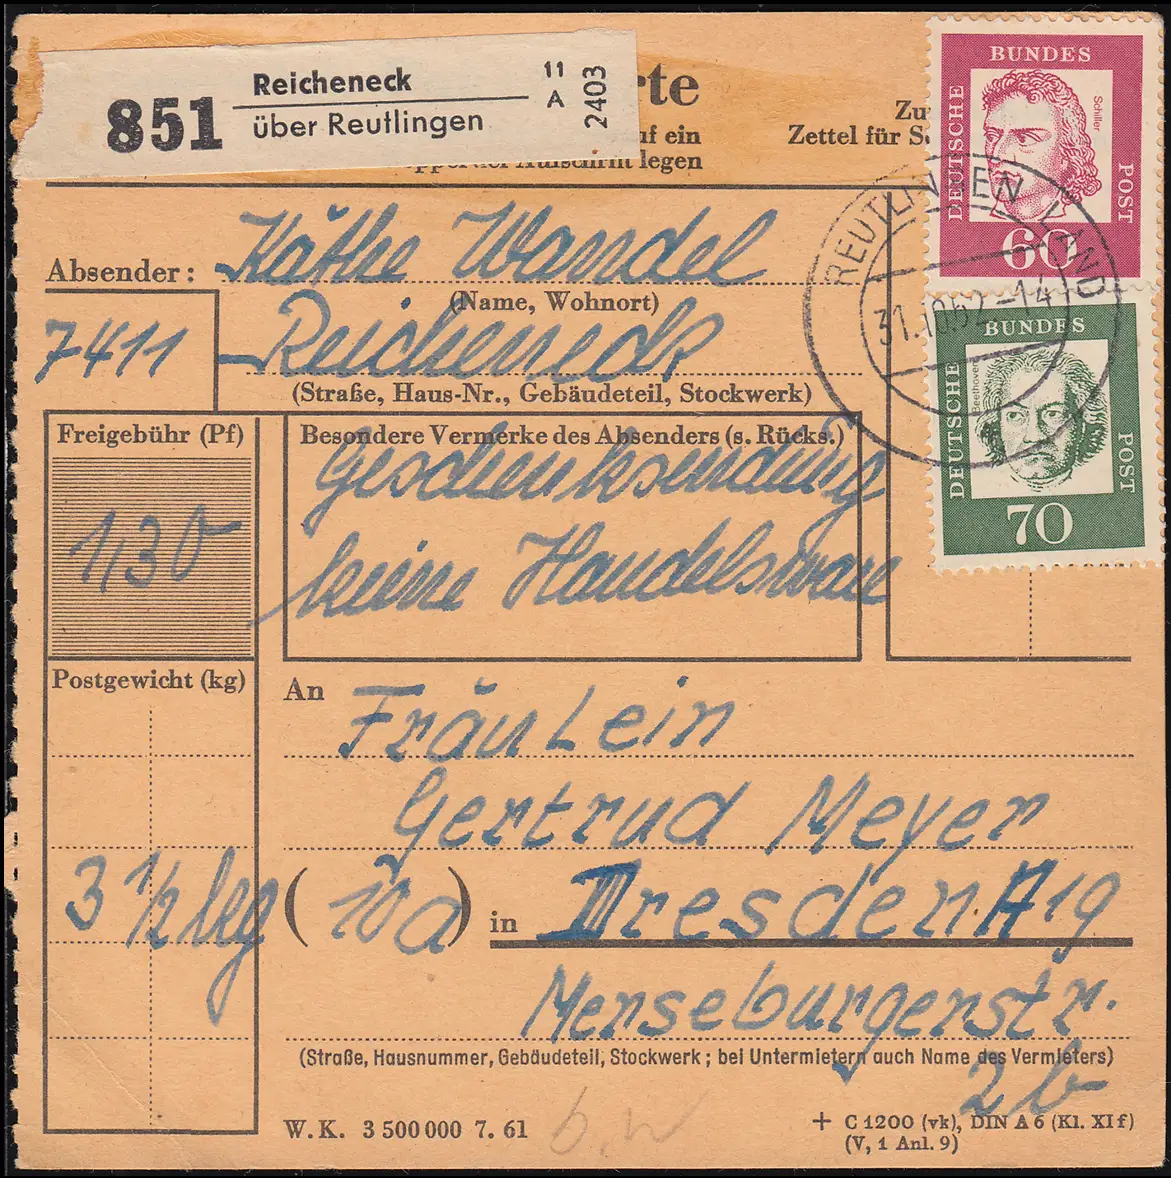 851 Reicheneck
über Reutlingen
11
A
2403
rte
uf ein
Aufschrift legen
Zu
Zettel für S
BUNDES
DEUTSCHE
POST
Schiller
60
REUTLINGEN LAND
31.10.62.-14
BUNDES
DEUTSCHE
POST
Beethoven
70
Absender: Käthe Wandel
(Name, Wohnort)
7411 Reicheneck
(Straße, Haus-Nr., Gebäudeteil, Stockwerk)
Freigebühr (Pf)
1,30
Besondere Vermerke des Absenders (s. Rücks.)
Geschenksendung
keine Handelsware
Postgewicht (kg)
3 1/2 kg
An Fräulein
Gertrud Meyer
(10a) in Dresden A 19
Merseburgerstr.
(Straße, Hausnummer, Gebäudeteil, Stockwerk; bei Untermietern auch Name des Vermieters)
2b
W. K. 3 500 000 7. 61
+ C 1200 (vk), DIN A 6 (Kl. XI f)
(V, 1 Anl. 9)